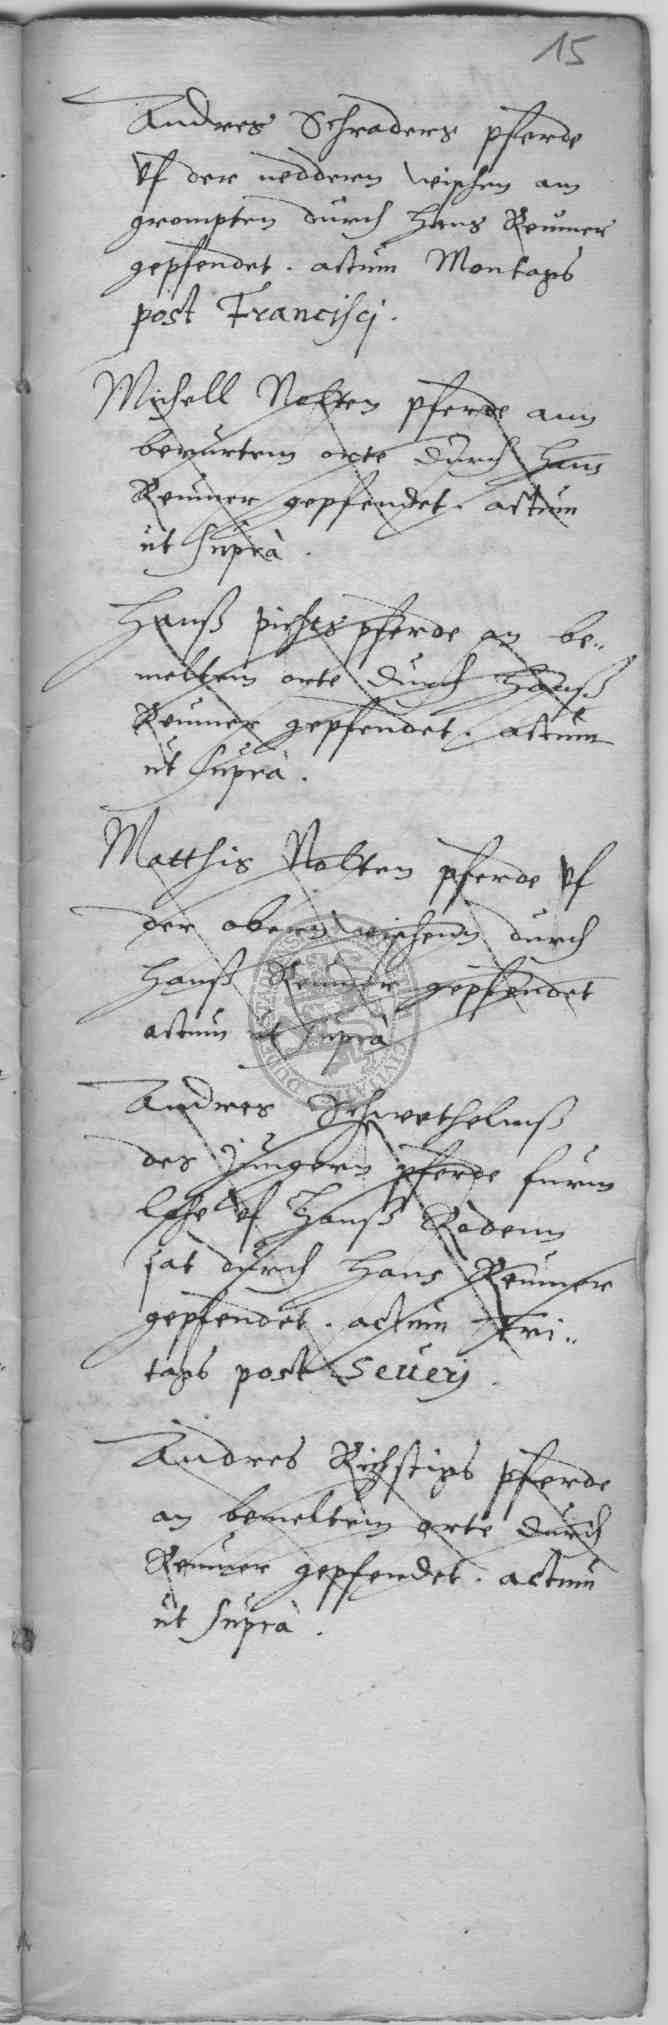 15
Andres Schraders pferde
vf der neddern wischen am
grompten durch Hans Reuner
gepfendet. actum Montags
post Francisci.
Michell Nolten pferde ann
berurtem orte durch Hans
Reuner gepfendet. actum
ut suprà.
Hanß pichts pferde an be„
meltem orte durch Hanß
Reuner gepfendet. actum
ut suprà.
Matthis Nolten pferde vf
der obern wischenn durch
Hanß Reuner gepfendet
actum ut suprà
Andres Schwethelmß
des jungern pferde furm
Lohe vf Hanß Rodenn
sat durch Hans Reuner
gepfendet. actum Fri„
tags post Seueri.
Andres Richstigs pferde
an bemeltem orte durch
Reuner gepfendet. actum
ut suprà.